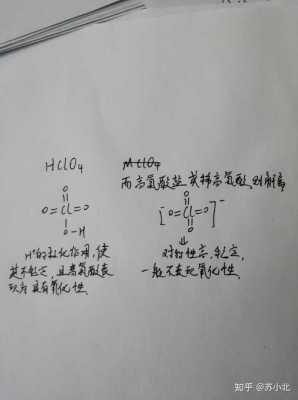 HClO4
MClO4
而高氯酸盐或稀高氯酸,则解离
O
O=Cl=O
O-H
[O=Cl=O]-
O
H+的极化作用,使
其不稳定,且高氯酸表
现为具有氧化性.
对称性高,稳定,
一般不表现氧化性.
知乎 @苏小北